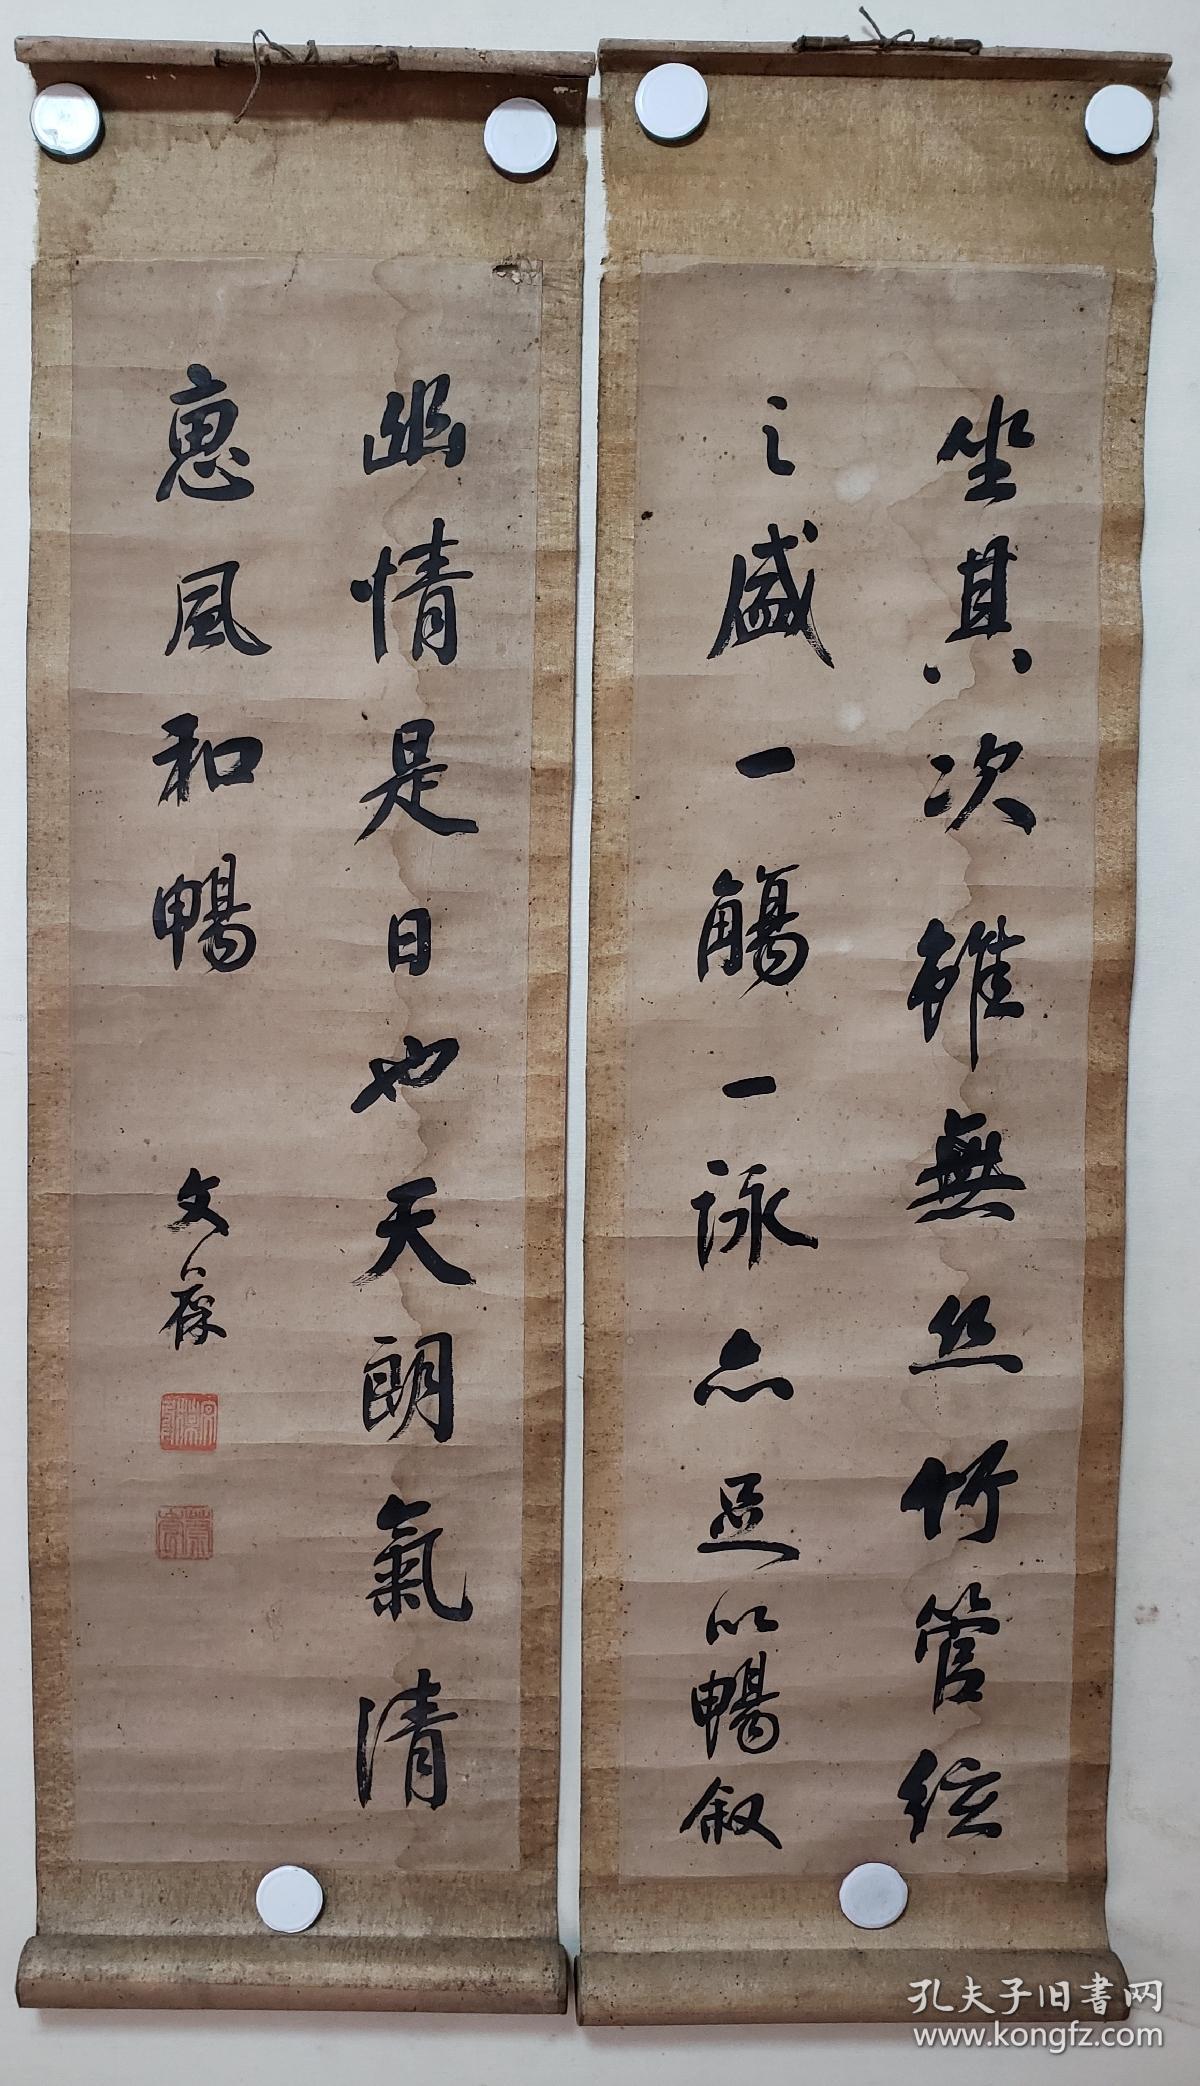 坐其次雖無丝竹管絃
之盛一觴一詠亦足以暢叙
幽情是日也天朗氣清
惠風和暢
文葆
孔夫子旧書网
www.kongfz.com